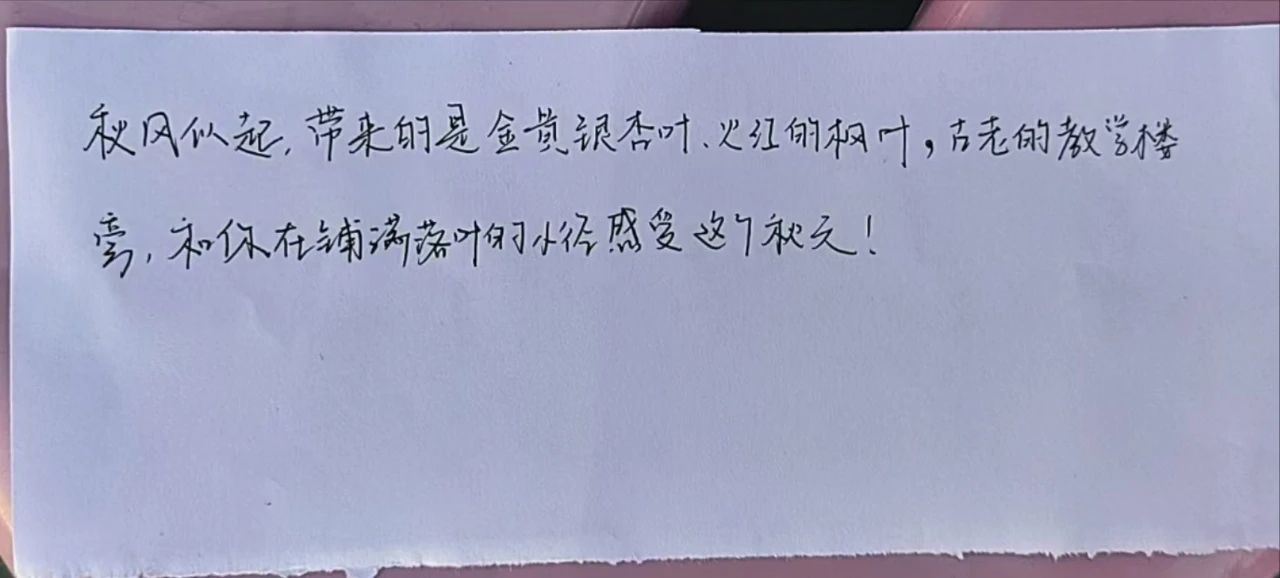 秋风似起,带来的是金黄银杏叶、火红的枫叶,古老的教学楼
旁,和你在铺满落叶的小径感受这个秋天!